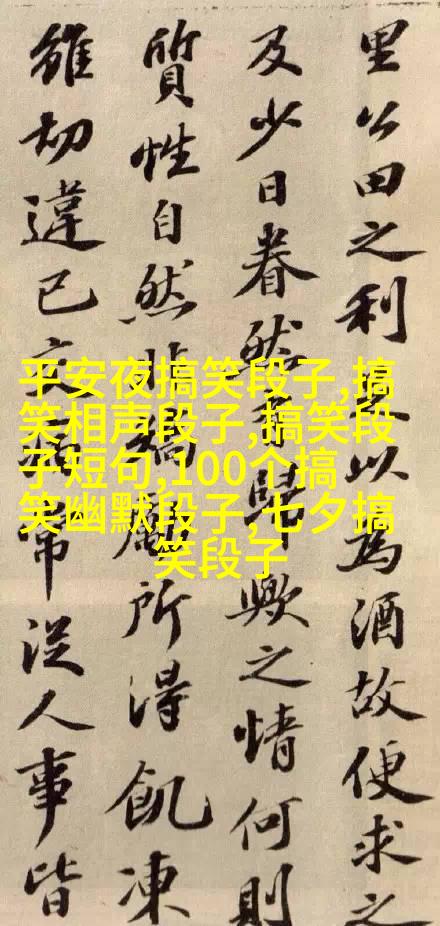 平安夜搞笑段子,搞
笑相声段子,搞笑段
子短句,100个搞
笑幽默段子,七夕搞
笑段子
里公田之利以為酒故便求之
及少日眷然有歸歟之情何則
質性自然非矯勵所得飢凍
雖切違己交病常從人事皆